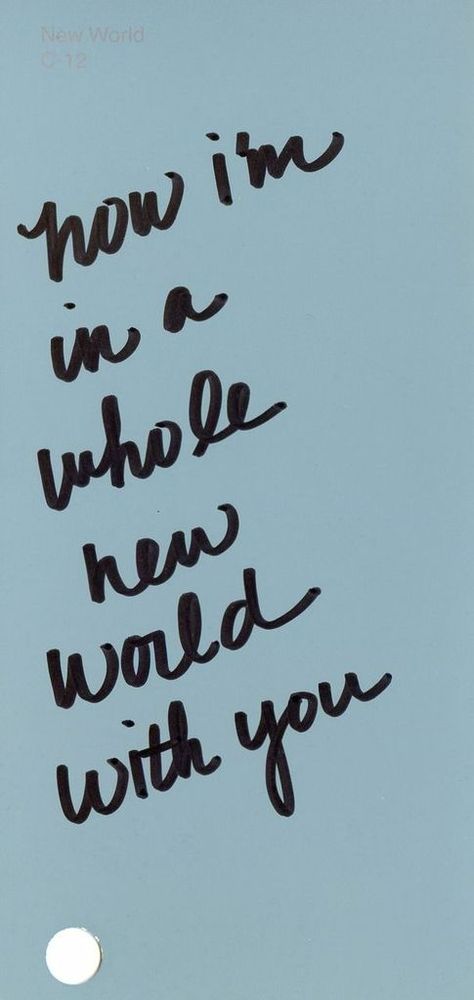 New World
C-12
now i'm
in a
whole
new
world
with you